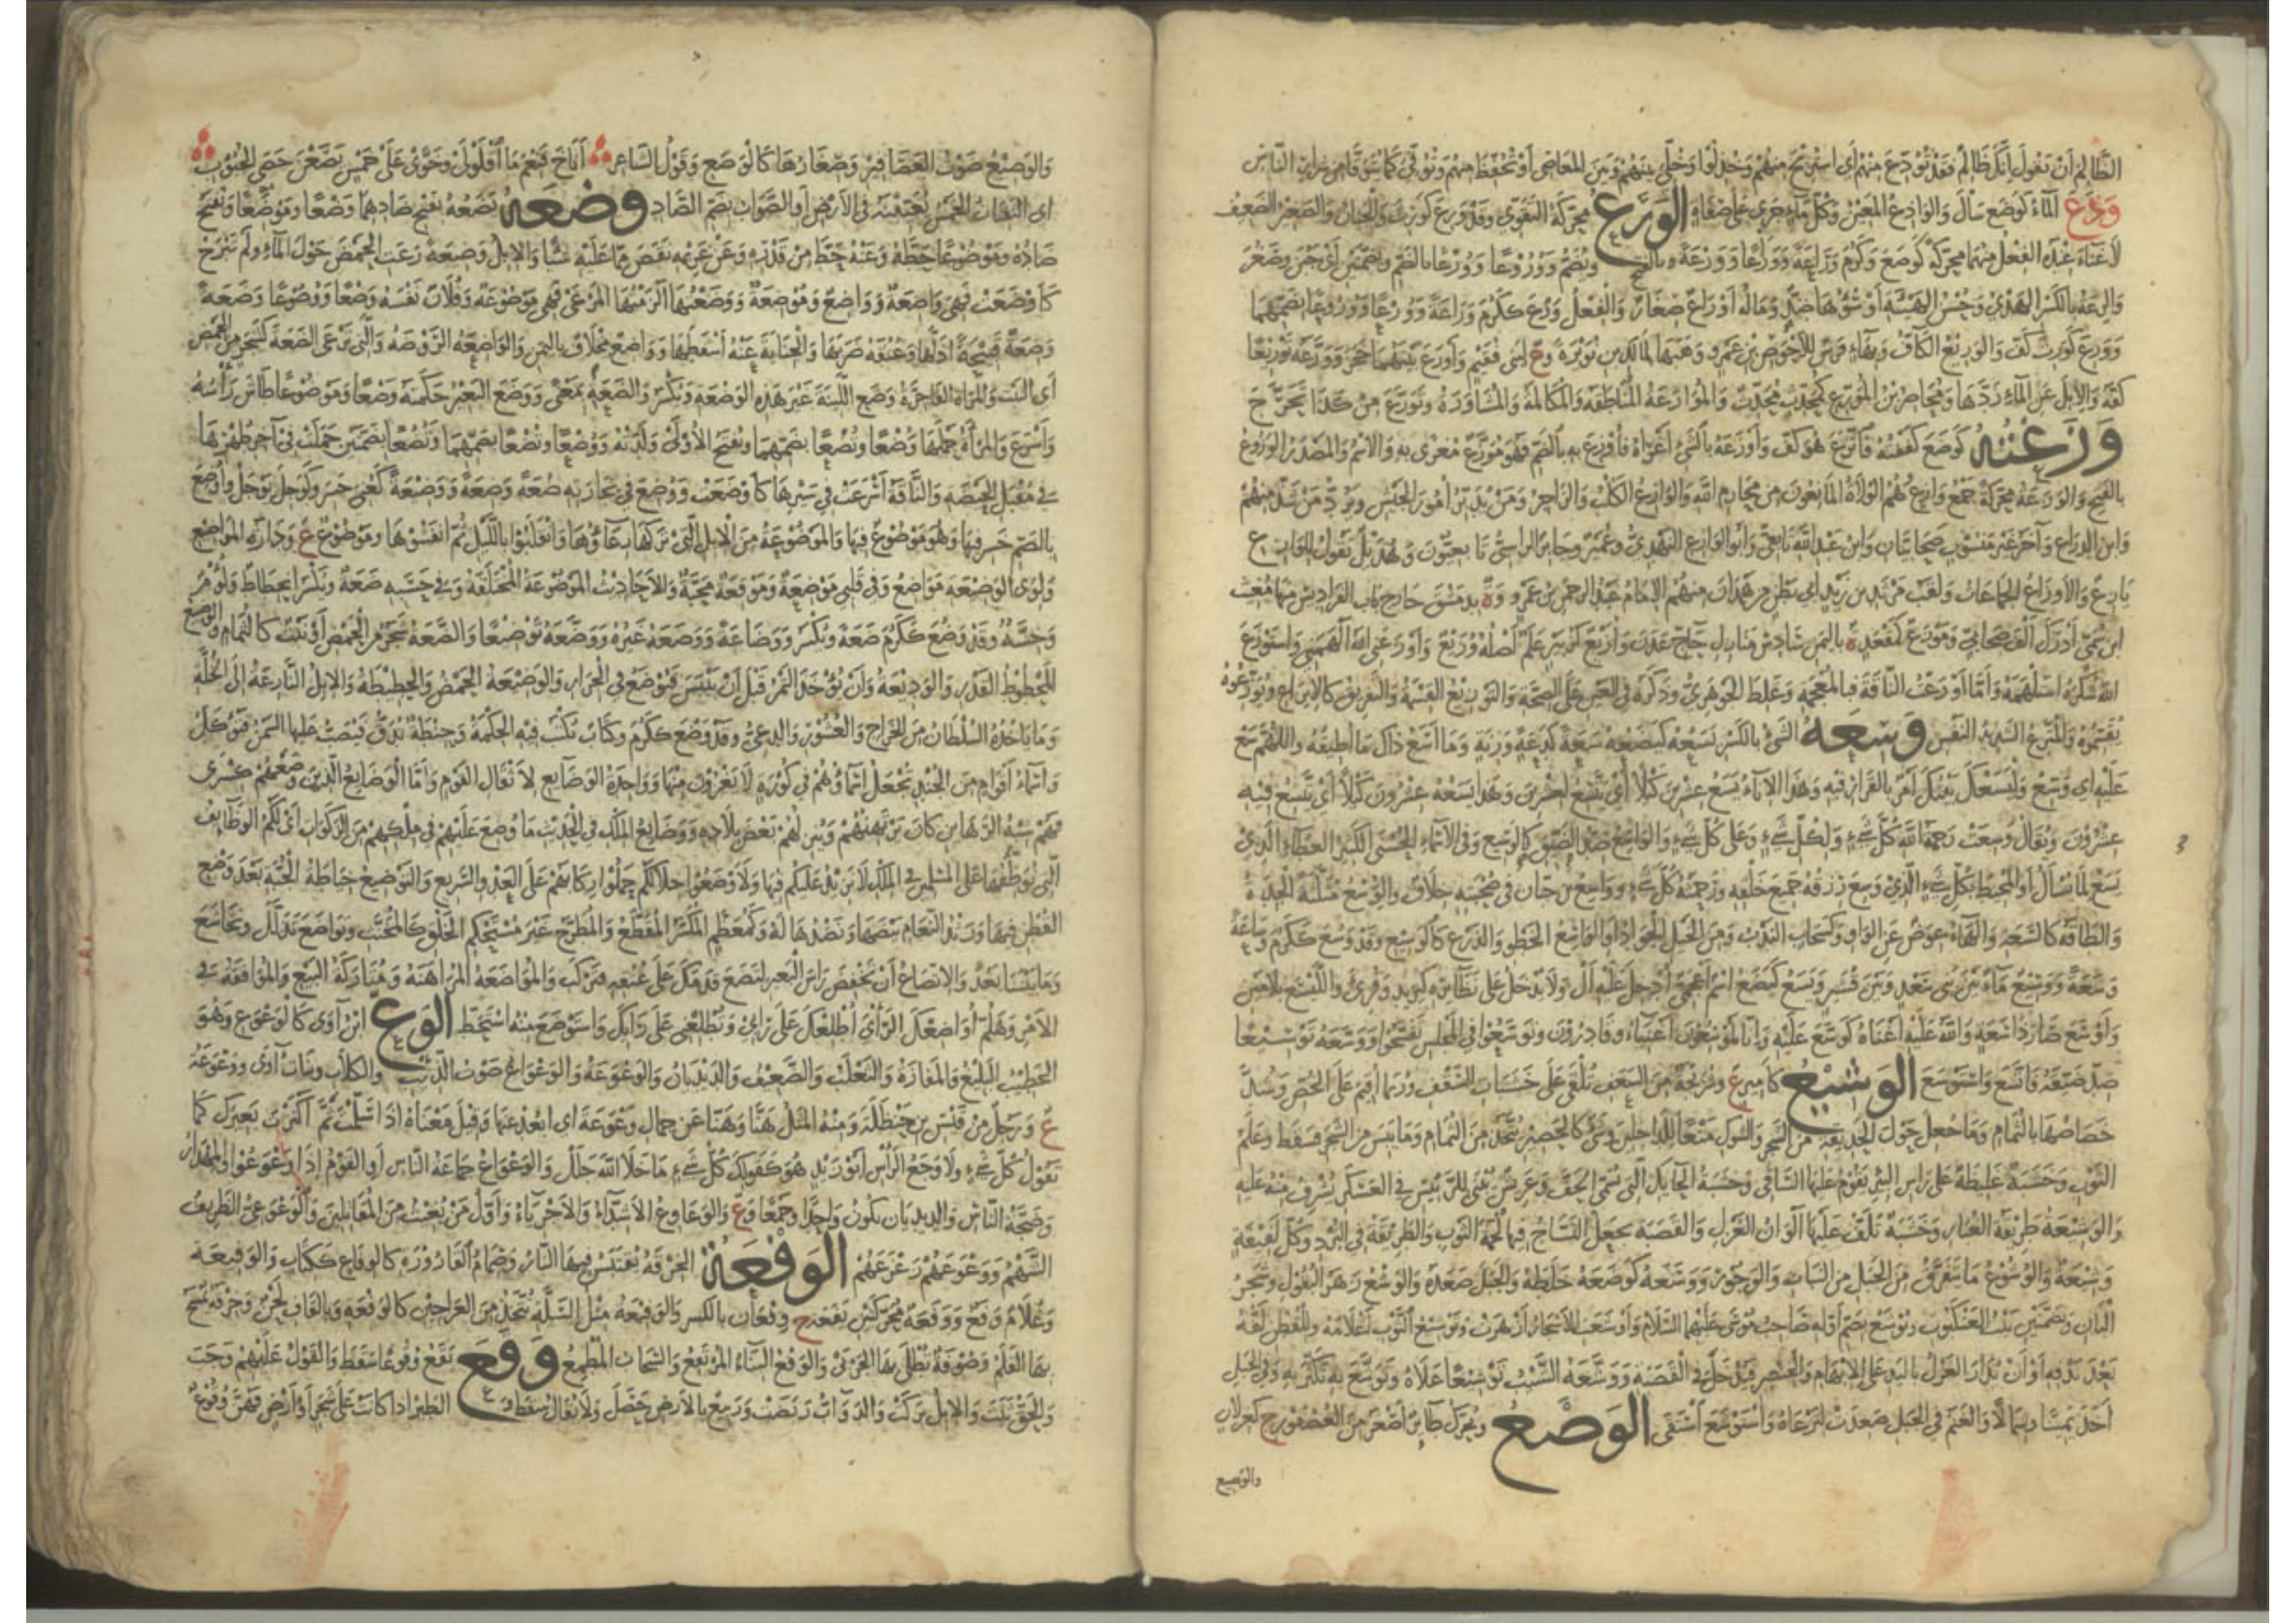 الظالم أن تقول إنك ظالم فقد تودع منهم أي استريح منهم وخذلوا وخلي بينهم وبين المعاصي أو تحفظ منهم وتوقي كما يتوقى من شرار الناس
وذع الماء كوضع سال والواذع المعين وكل ماء جرى على صفاة الورع محركة التقوى وقد ورع كورث والجبان والصغير الضعيف
لا غناء عنده الفعل منهما محركة كوضع وكرم وراعة ووراعا وورعة وبالفتح ويضم ووروعا وورعا بالضم وبضمتين أي جبن وصغر
والرعة بالكسر الهدي وحسن الهيئة أو سوءها ضد وماله أوراع صغار والفعل ورع ككرم وراعة وورعا ووروعا بضمهما
وورع كورث كف والوريع الكاف وبهاء فرس للأحوص بن عمرو وهبها لمالك بن نويرة وع لبني فقيم وأورع بينهما حجز وورعه توريعا
كفه والإبل عن الماء ردها ومحاضر بن المورع كمحدث محدث والموارعة المناطقة والمكالمة والمشاورة وتورع من كذا تحرج
وزعته كوضع كففته فاتزع هو كف وأوزعه بالشيء أغراه فأوزع به بالضم فهو موزع مغرى به والاسم والمصدر الوزوع
بالفتح والوزعة محركة جمع وازع وهم الولاة المانعون من محارم الله والوازع الكلب والزاجر ومن يدبر أمور الجيش ويرد من شذ منهم
وابن الذراع وآخر غير منسوب صحابيان وابن عبد الله تابعي وأبو الوازع النهدي وعمير وجابر الراسبي تابعيون وهذيل تقول للوازع
يازع والأوزاع الجماعات ولقب مرثد بن زيد أبي بطن من همدان منهم الإمام عبد الرحمن بن عمرو وة بدمشق خارج باب الفراديس منها مغيث
ابن سمي أدرك ألف صحابي وموزع كمقعد ة باليمن سادس منازل حاج عدن وأزيع كزبير علم أصله وزيع وأوزعني الله ألهمني واستوزع
الله شكره استلهمه وأما أوزعت الناقة فبالمعجمة وغلط الجوهري وذكره في الغين على الصحة والتوزيع القسمة والتفريق كالإيزاع وتوزعوه
تقسموه والمتزع الشديد النفس وسعه الشيء بالكسر يسعه كيضعه سعة كدعة وزنة وما أسع ذاك ما أطيقه واللهم سع
عليه أي وسع وليسعك بيتك أمر بالقرار فيه وهذا الإناء يسع عشرين كيلا أي يتسع لعشرين وهذا يسعه عشرون كيلا أي يتسع فيه
عشرون ويقال وسعت رحمة الله كل شيء ولكل شيء وعلى كل شيء والواسع ضد الضيق كالوسيع وفي الأسماء الحسنى الكثير العطاء الذي
يسع لما يسأل أو المحيط بكل شيء الذي وسع رزقه جميع خلقه ورحمته كل شيء وواسع بن حبان في صحبته خلاف والوسع مثلثة الجدة
والطاقة كالسعة والهاء عوض عن الواو وكسحاب الندب ومن الخيل الجواد أو الواسع الخطو والذرع كالوسيع وقد وسع ككرم وساعة
وسعة ووسيع ماء بين بني سعد وبين قشير ويسع كيضع اسم أعجمي أدخل عليه أل ولا يدخل على نظائره كيزيد وقرئ والليسع بلامين
وأوسع صار ذا سعة والله عليه أغناه كوسع عليه وإنا لموسعون أغنياء قادرون وتوسعوا في المجلس تفسحوا ووسعه توسيعا
ضد ضيقه فاتسع واستوسع الوشيع كأمير ع وشريجة من السعف تلقى على خشبات السقف وربما أقيم على الخص وسد
خصاصها بالثمام وما جعل حول الحديقة من الشجر والشوك منعا للداخلين وشيء كالحصير يتخذ من الثمام وما يبس من الشجر فسقط وعلم
الثوب وخشبة غليظة على رأس البئر يقوم عليها الساقي وخشبة الحائك التي تسمى الحف وعريش يبنى للرئيس في العسكر يشرف منه عليه
والوشيعة طريقة الغبار وخشبة تلف عليها ألوان الغزل والقصبة يجعل النساج فيها لحمة الثوب والطريقة في البرد وكل لفيفة
وشيعة والوشوع ما يتفرق من الجبل من النبات والوجور ووشعه كوضعه خلطه والجبل صعده والوشع زهر البقول وشجر
البان وبضمتين بيت العنكبوت وتوشع بضم أوله صاحب موسى عليهما السلام وأوشعت الأشجار أزهرت وتوشيع الثوب إعلامه والقطن لفه
بعد ندفه أو أن يدار الغزل باليد على الإبهام والخنصر فيدخل في القصبة ووشعه الشيب توشيعا علاه وتوشع به تكثر به وفي الجبل
أخذ يمينا وشمالا والغنم في الجبل صعدت لترعاه واستوشع استقى الوصع ويحرك طائر أصغر من العصفور ج كغزلان
والوصيع
والوصيع صوت العصافير وصغارها كالوصع وقول الشاعر أناخ فنعم ما اقلولى وخوى على خمس يصعن حصى الجبوب
أي الثفنات الخمس يغيبنه في الأرض أو الصواب بضم الصاد وضعه يضعه بفتح ضادهما وضعا وموضعا وتفتح
ضاده وموضوعا حطه وعنه حط من قدره وعن غريمه نقص مما عليه شيئا والإبل وضيعة رعت الحمض حول الماء ولم تبرح
كأوضعت فهي واضعة وواضع وموضعة ووضعتها ألزمتها المرعى فهي موضوعة وفلان نفسه وضعا ووضوعا وضعة
وضعة قبيحة أذلها وعنقه ضربها والجناية عنه أسقطها وواضع مخلاف باليمن والواضعة الروضة والتي ترعى الضعة لشجر من الحمض
أي النبت والمرأة الفاجرة وضع اللبنة غير هذه الوضعة وتكسر والضعة بمعنى ووضع البعير حكمته وضعا وموضوعا طاش رأسه
وأسرع والمرأة حملها وضعا وتضعا بضمهما وتفتح الأولى ولدته ووضعا وتضعا بضمهما وتضعا بضمتين حملت في آخر طهرها
في مقبل الحيضة والناقة أسرعت في سيرها كأوضعت ووضع في تجارته ضعة وضعة ووضيعة كعني خسر وكوجل يوجل وأوضع
بالضم خسر فيها وهو موضوع فيها والموضوعة من الإبل التي تركها رعاؤها وانقلبوا بالليل ثم أنفشوها وموضوع ع ودارة المواضيع
ولوى الوضيعة مواضع وفي قلبي موضعة وموقعة محبة والأحاديث الموضوعة المختلقة وفي حسبه ضعة وتكسر انحطاط ولؤم
وخسة وقد وضع ككرم ضعة وتكسر ووضاعة ووضعه غيره ووضعه توضيعا والضعة شجر من الحمض أو نبت كالثمام والوضيع
المحطوط القدر والوديعة وأن يؤخذ التمر قبل أن ييبس فيوضع في الجرار والوضيعة الحمض والحطيطة والإبل النازعة إلى الخلة
وما يأخذه السلطان من الخراج والعشور والدعي وقد وضع ككرم وكتاب تكتب فيه الحكمة وحنطة تدق فيصب عليها السمن فتؤكل
وأسماء أقوام من الجند تجعل أسماؤهم في كورة لا يغزون منها وواحدة الوضايع لأثقال القوم وأما الوضايع الذين وضعهم كسرى
فهم شبه الرهاين كان يرتهنهم وينزلهم بعض بلاده ووضايع الملك في الحديث ما وضع عليهم في ملكهم من الزكوات أي لكم الوظائف
التي نوظفها على المسلمين في الملك لا نزيد عليكم فيها ولا وضعوا خلالكم حملوا ركابهم على العدو السريع والتوضيع خياطة الجبة بعد وضع
القطن فيها ورثد النعام بيضها ونضدها له وكمعظم المكسر المقطع والمطرح غير مستحكم الخلق كالمخنث وتواضع تذلل وتخاشع
وما بيننا بعد والاتضاع أن تخفض رأس البعير لتضع قدمك على عنقه فتركب والمواضعة المراهنة ومتاركة البيع والموافقة في
الأمر وهلم أواضعك الرأي أطلعك على رأيي وتطلعني على رأيك واستوضع منه استحط الوع ابن آوى كالوعوع وهو
الخطيب البليغ والمفازة والثعلب والضعيف والديدبان والوعوعة والوعواع صوت الذئب والكلاب وبنات آوى ووعوعة
ع ورجل من قيس بن حنظلة ومنه المثل هنا وهنا عن جمال وعوعة أي ابعد عنها وقيل معناه إذا سلمت ثم أكترث بعيرك كما
تقول كل شيء ولا وجع الرأس أبو زيد هو كقولك كل شيء ما خلا الله جلل والوعواع جماعة الناس أو القوم إذا وعوعوا والمهذار
وضجة الناس والديدبان يكون واحدا وجمعا وع والوعاوع الأشداء والأجرياء وأول من يغيث من المقاتلين والوعوعي الظريف
الشهم ووعوعهم زعزعهم الوفعة الخرقة يقتبس فيها النار وصمام القارورة كالوفاع ككتاب والوفيعة
وغلام وفع ووفعة محركتين يفعة ج وفعان بالكسر والوفيعة مثل السلة يتخذ من العراجين كالوفعة وبالقاف لحن وخرقة تمسح
بها القلم وصوفة يطلى بها الجربى والوفع البناء المرتفع والسحاب المطمع وقع يقع وقوعا سقط والقول عليهم وجب
والحق ثبت والإبل بركت والدواب ربضت وربيع بالأرض حصل ولا يقال سقط و الطير إذا كانت على شجر أو أرض فهن وقوع